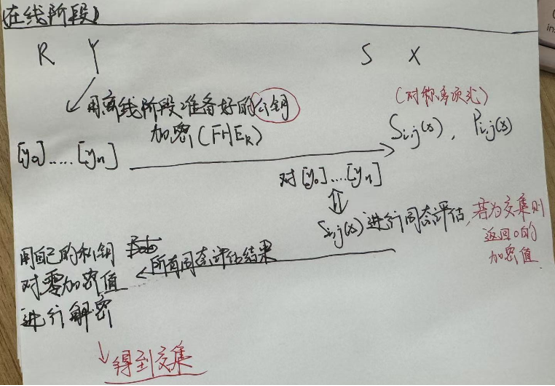 (在线阶段)
R Y S X
用离线阶段准备好的公钥
加密(FHE_R)
(对称多项式)
[y₀].....[yₙ]
S_{i,j}(x), P_{i,j}(x)
对[y₀]....[yₙ]
S_{i,j}(x)进行同态评估,
若为交集则
返回0的
加密值
所有同态评估结果
用自己的私钥
对零加密值
进行解密
得到交集